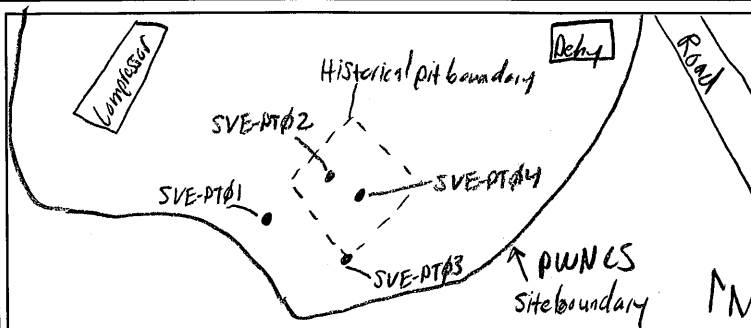 Compressor
Dehy
Road
Historical pit boundary
SVE-PTØ2
SVE-PTØ4
SVE-PTØ1
SVE-PTØ3
PWNCS
Site boundary
N